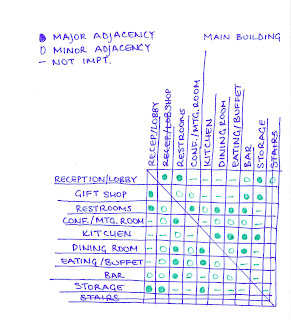 ● MAJOR ADJACENCY
○ MINOR ADJACENCY
– NOT IMPT.
MAIN BUILDING
RECEP/LOBBY
RECEP/LOBSHOP
RESTROOMS
CONF./MTG. ROOM
KITCHEN
DINING ROOM
EATING/BUFFET
BAR
STORAGE
STAIRS
RECEPTION/LOBBY
GIFT SHOP
RESTROOMS
CONF./MTG. ROOM
KITCHEN
DINING ROOM
EATING/BUFFET
BAR
STORAGE
STAIRS